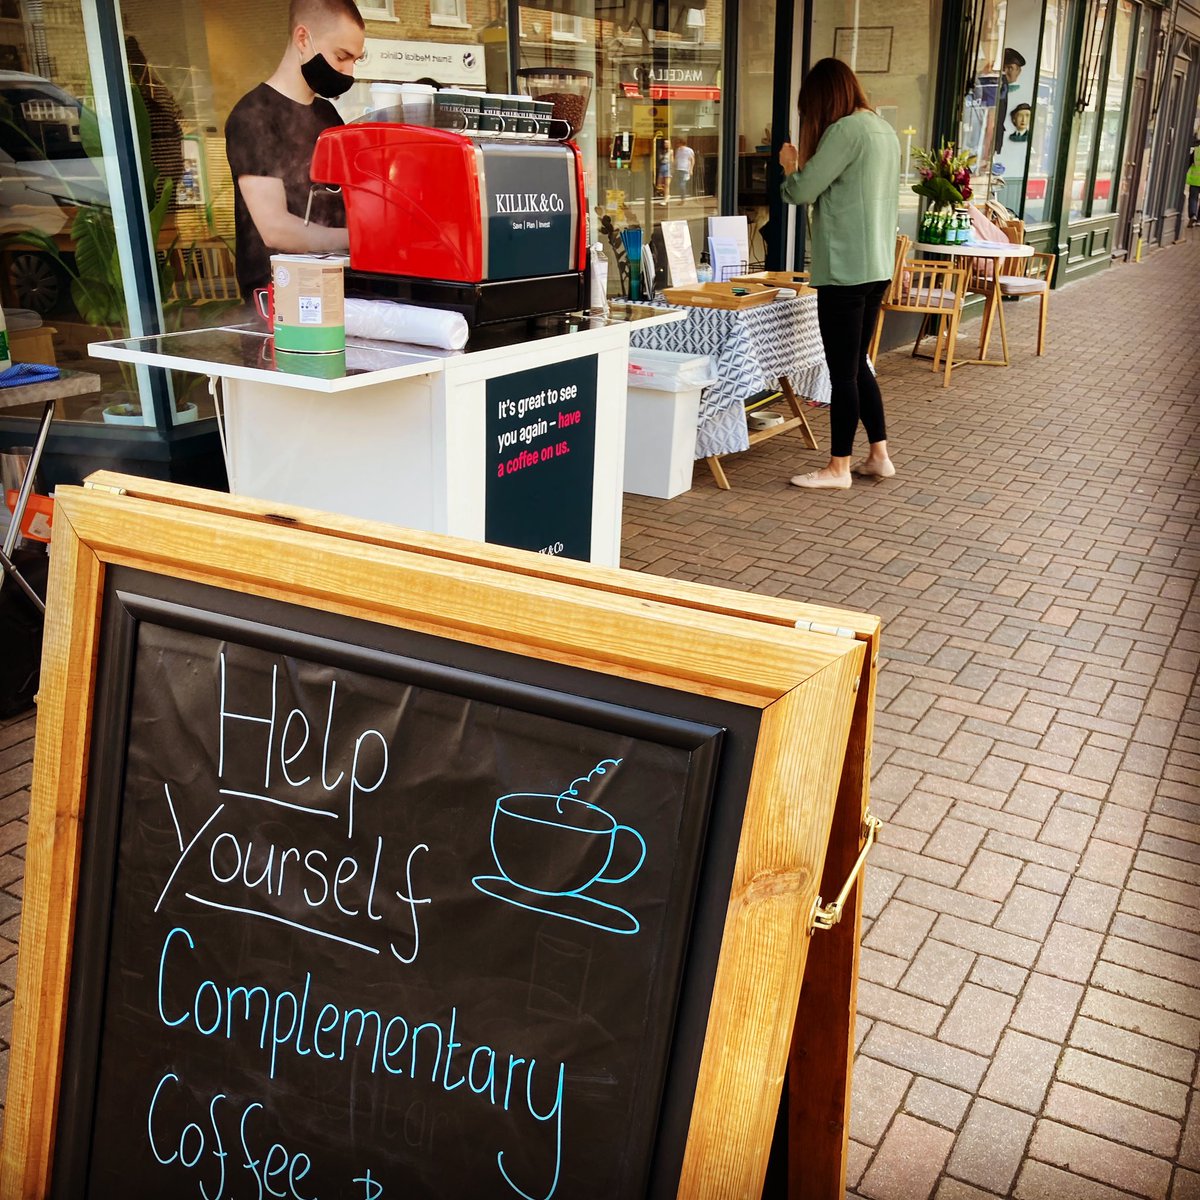 Smart Medical Clinics
MACELLAIO
KILLIK&Co
Save | Plan | Invest
It's great to see
you again – have
a coffee on us.
Help
Yourself
Complementary
Coffee